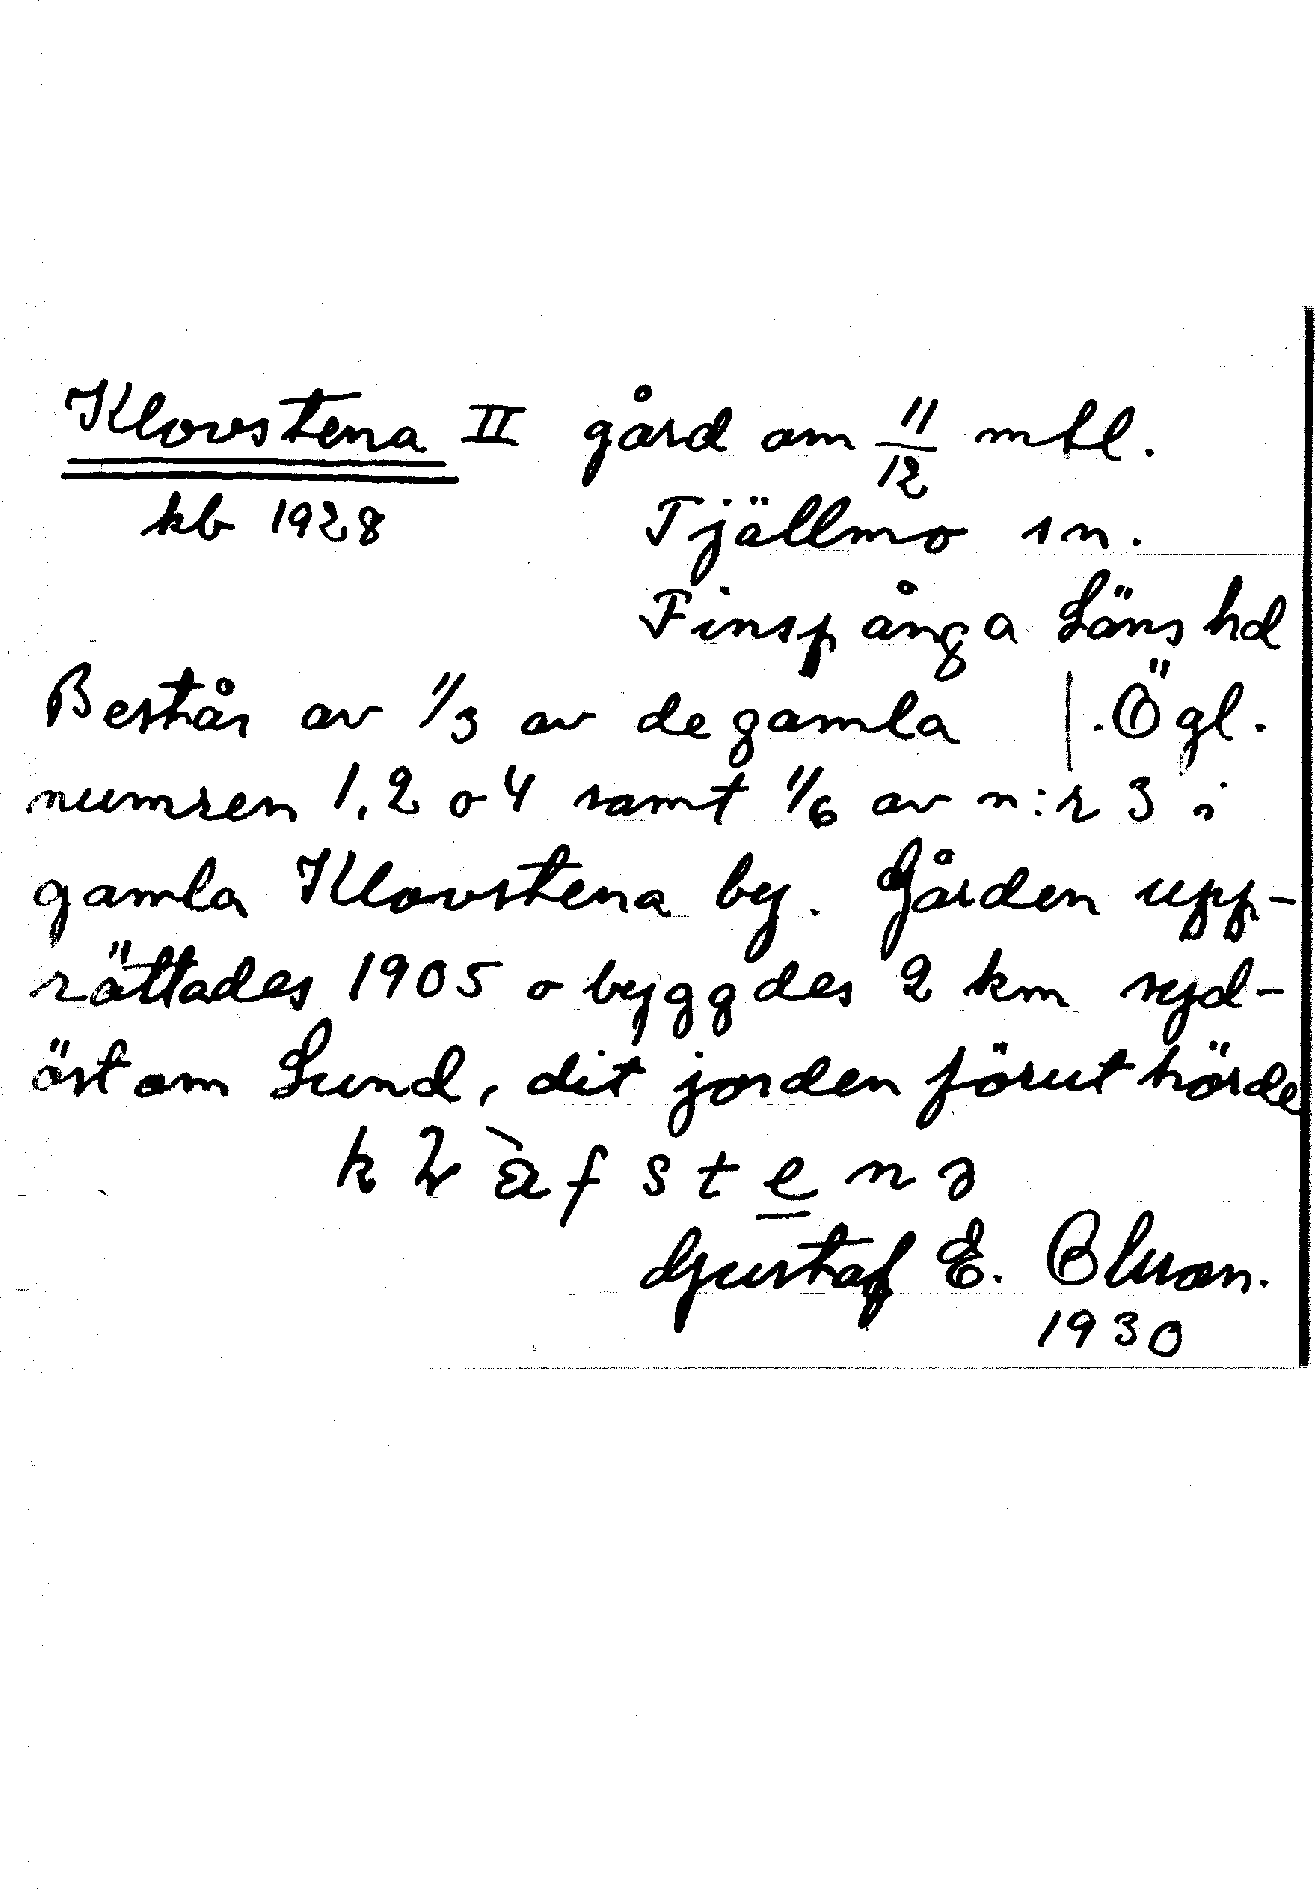 Klovstena II gård om 11/12 mtl.
kb 1928 Tjällmo sn.
Finspånga Läns hd
Består av 1/3 av de gamla |. Ögl.
numren 1, 2 o 4 samt 1/6 av n:r 3 i
gamla Klovstena by. Gården upp-
rättades 1905 o byggdes 2 km syd-
öst om Lund, dit jorden förut hörde
Gustaf E. Bluon.
1930